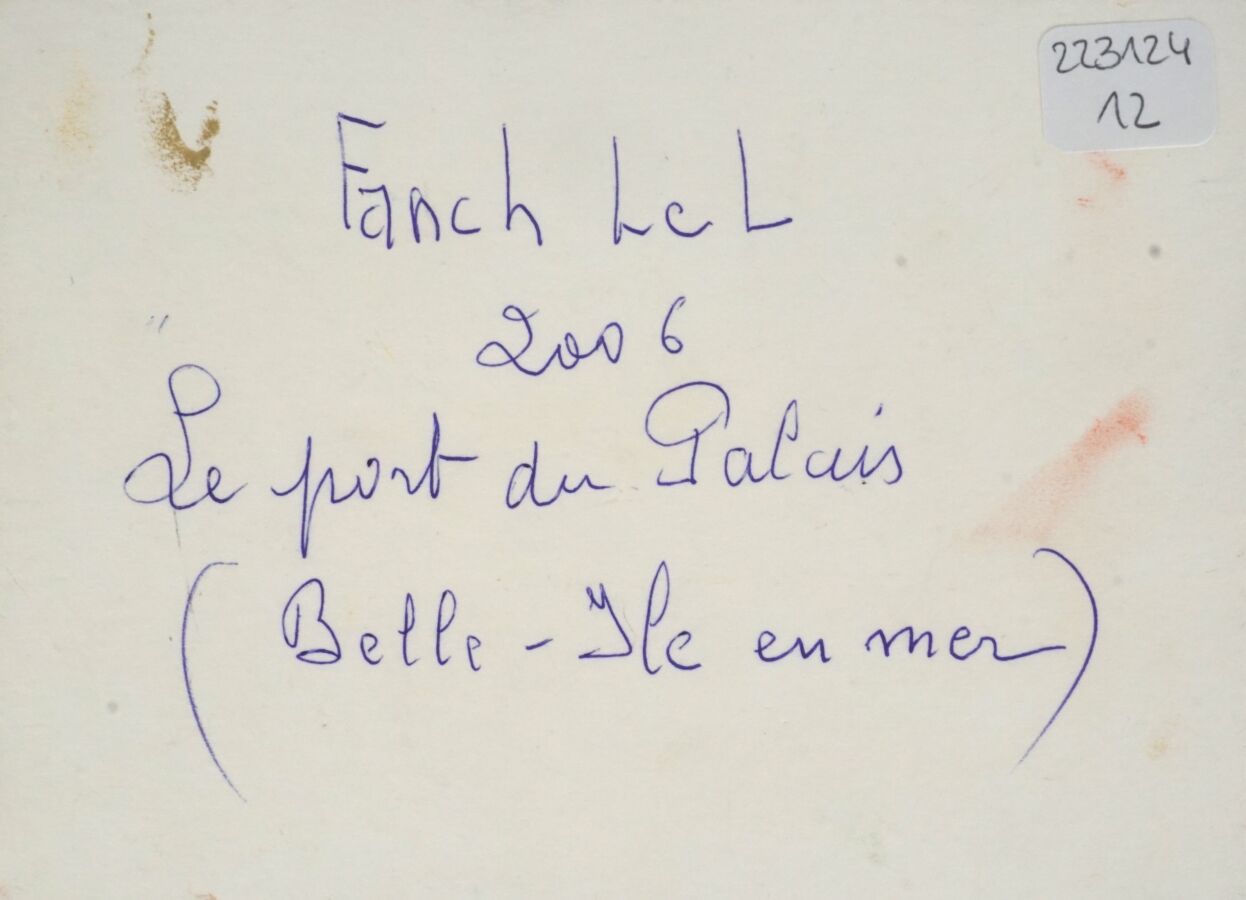 223124
12
Fanch Le L
2006
Le port du Palais
(Belle-Ile en mer)